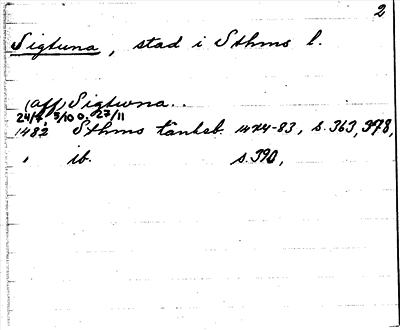 2
Sigtuna, stad i Sthms l.
(aff) Sigtwna..
24/8, 5/10 o. 27/11
1482 Sthms tänkeb. 1474-83, s. 363, 378,
" ib. s. 390,